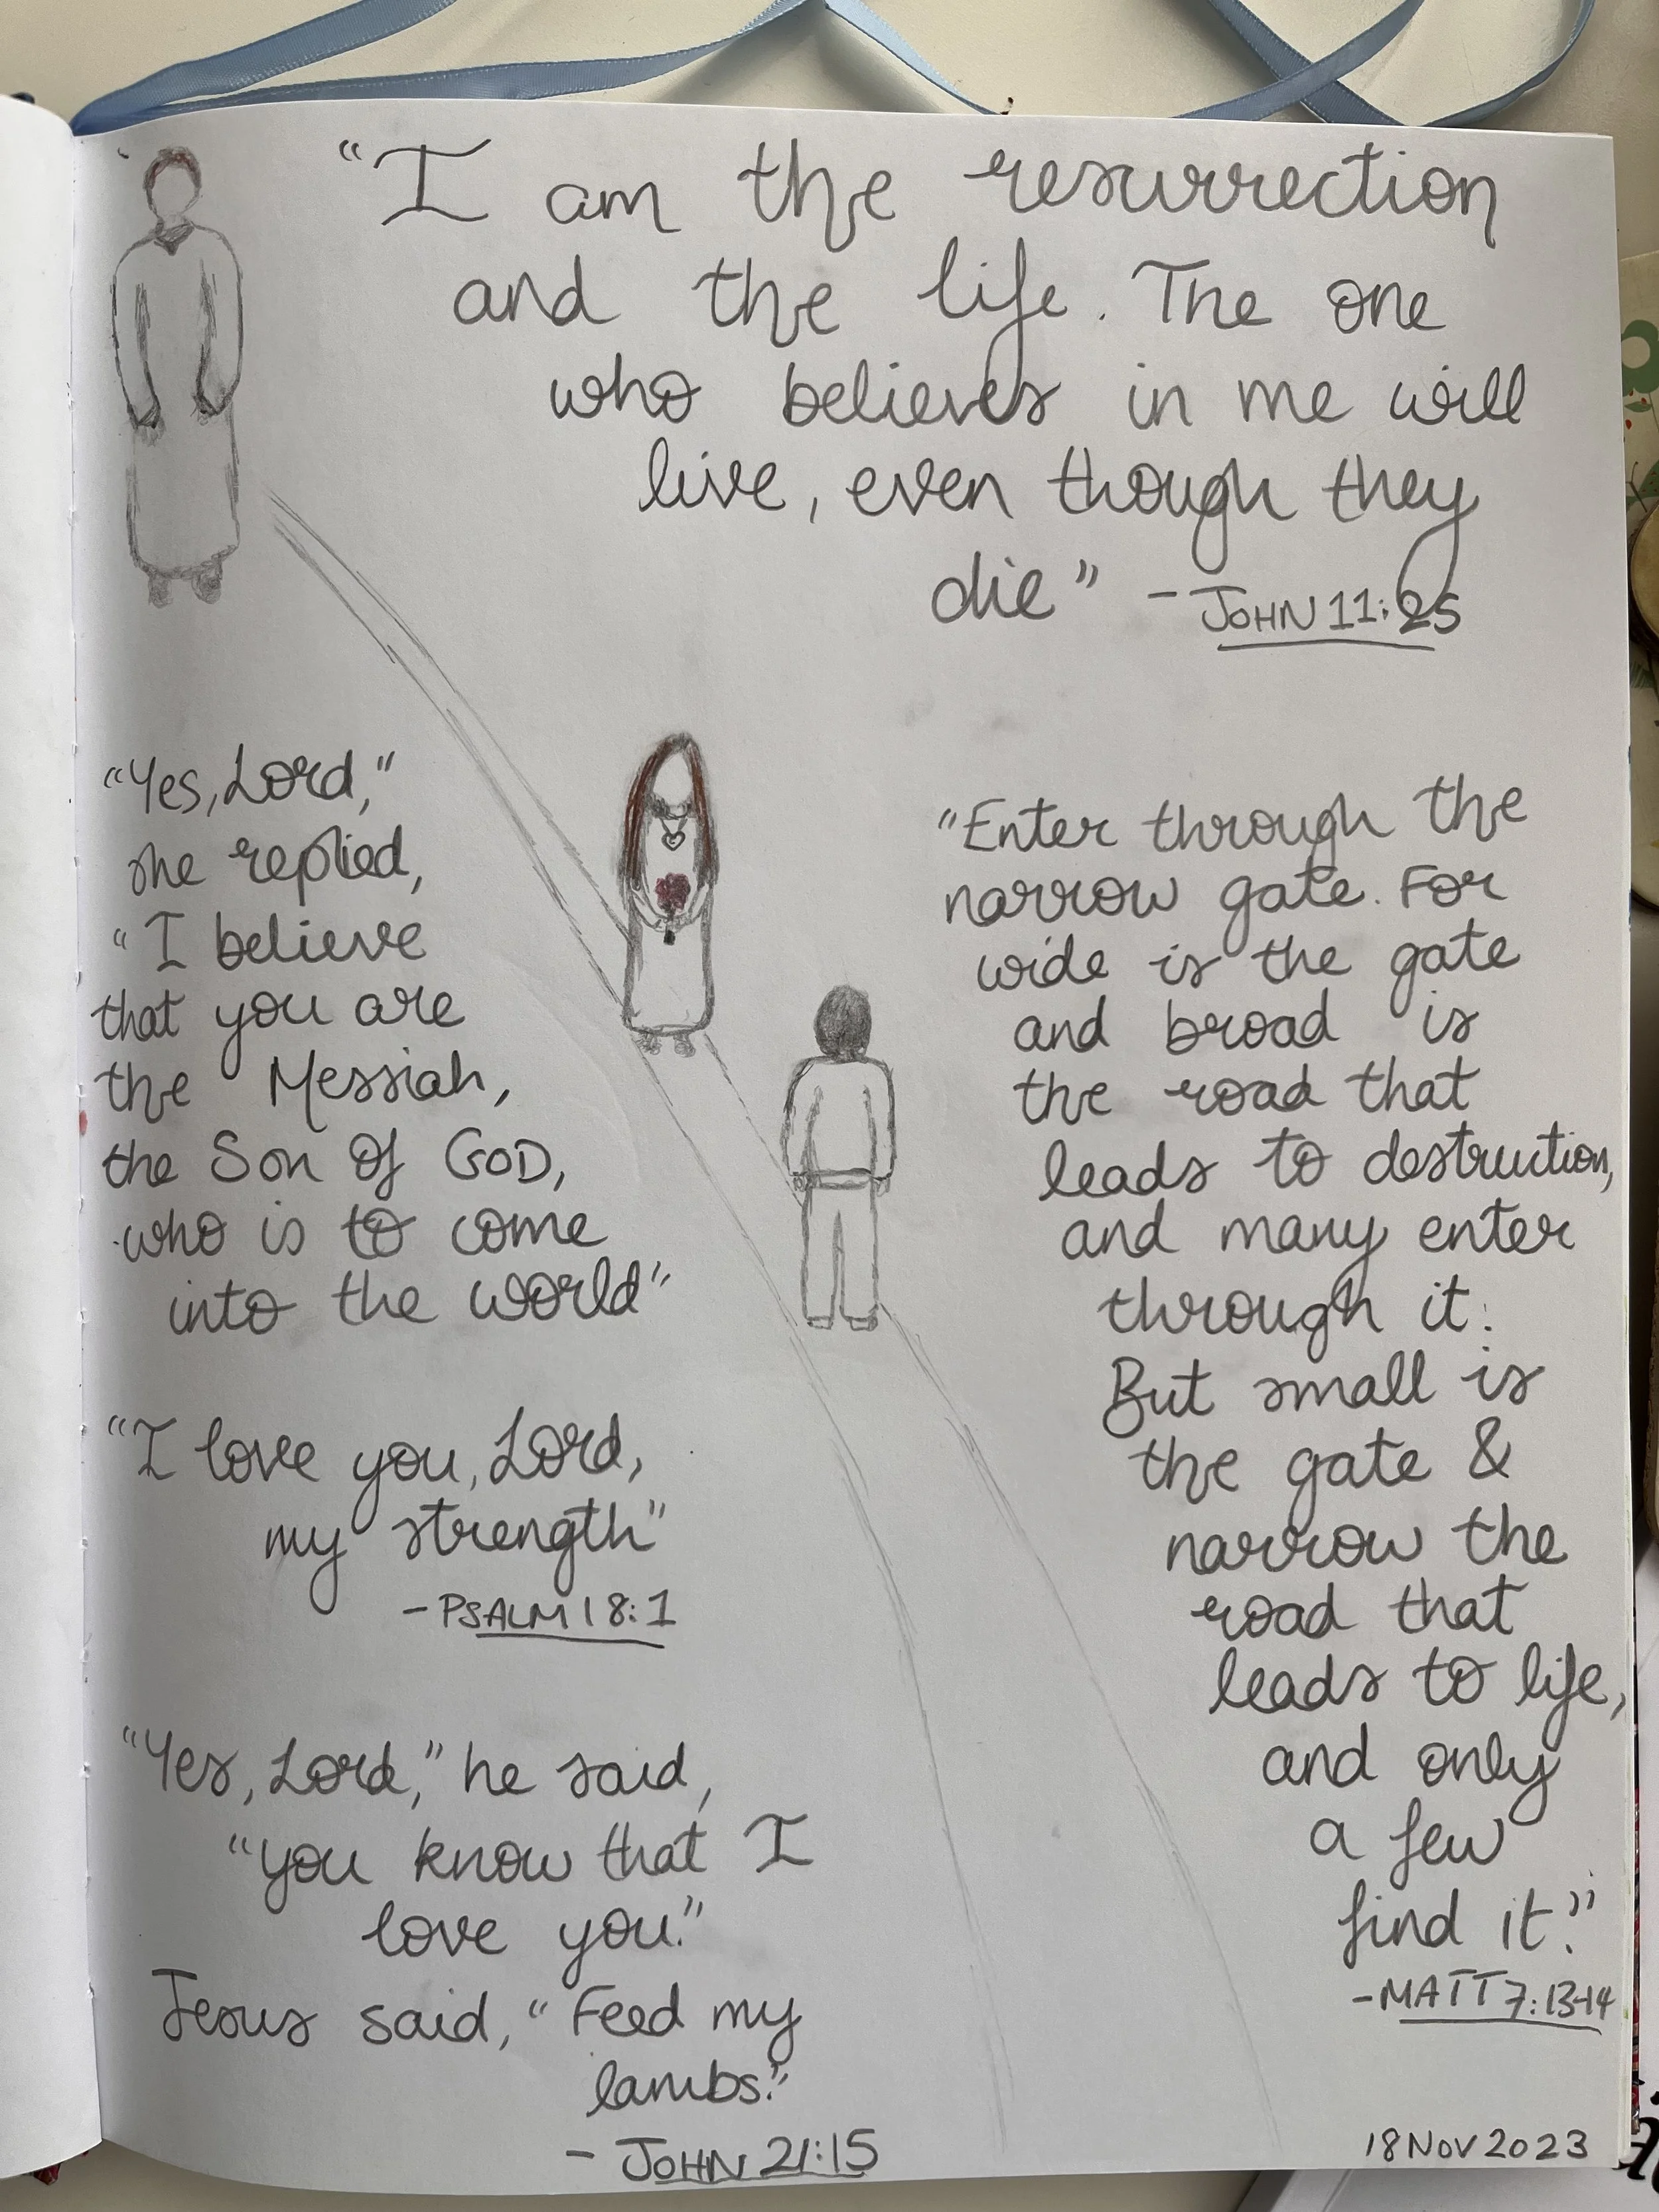 "I am the resurrection
and the life. The one
who believes in me will
live, even though they
die" - JOHN 11:25
"Yes, Lord,"
she replied,
"I believe
that you are
the Messiah,
the Son of GOD,
who is to come
into the world"
"I love you, Lord,
my strength"
- PSALM 18:1
"Yes, Lord," he said,
"you know that I
love you."
Jesus said, "Feed my
lambs."
- JOHN 21:15
"Enter through the
narrow gate. For
wide is the gate
and broad is
the road that
leads to destruction,
and many enter
through it.
But small is
the gate &
narrow the
road that
leads to life,
and only
a few
find it."
- MATT 7:13-14
18 NOV 2023